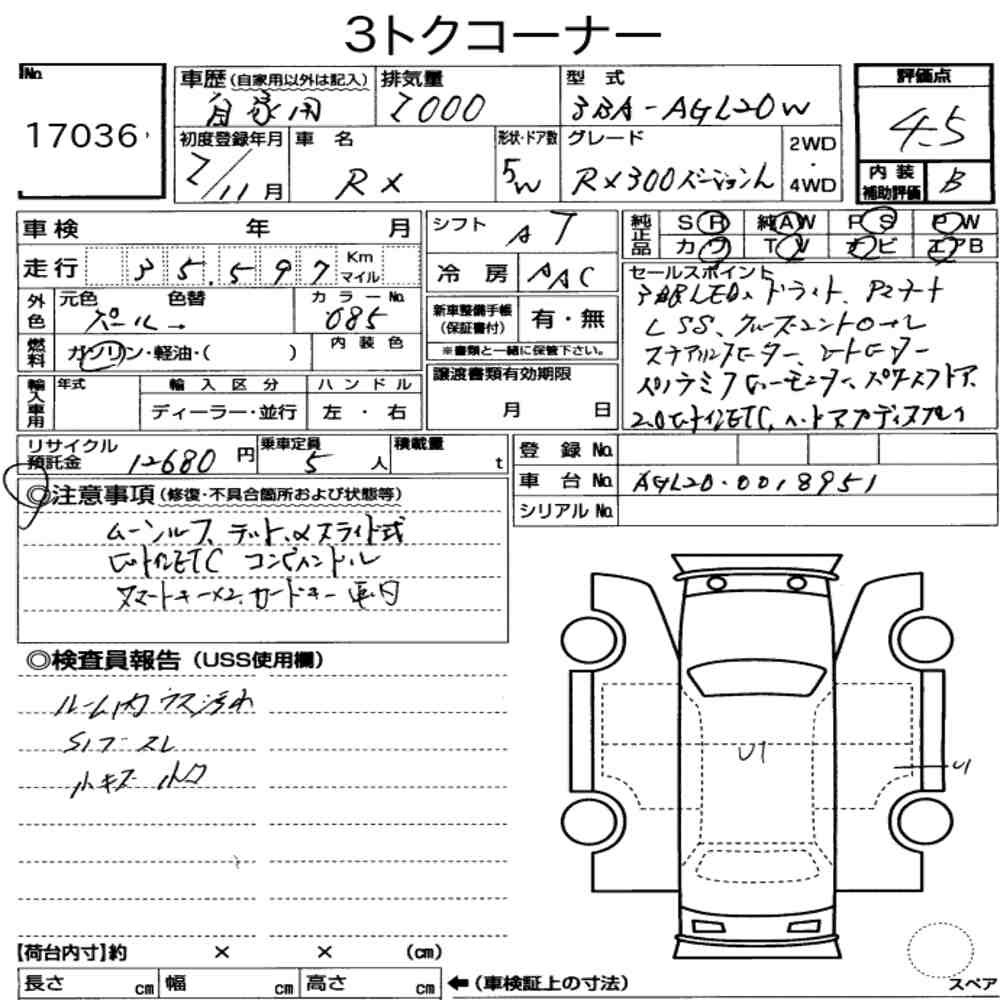 3トクコーナー
No.
17036
車歴(自家用以外は記入)
自家用
排気量
2000
型式
3BA-AGL20W
評価点
4.5
内装補助評価
B
初度登録年月
2/11月
車名
RX
形状・ドア数
5W
グレード
RX300バージョンL
2WD
・
4WD
車検 年 月
走行 35,597 Km マイル
外色
元色 色替
パール→
カラーNo.
085
燃料
ガソリン・軽油・( )
内装色
輸入車用
年式
輸入区分
ディーラー・並行
ハンドル
左・右
シフト AT
冷房 AAC
新車整備手帳(保証書付) 有・無
※書類と一緒に保管下さい。
譲渡書類有効期限
月 日
純正品
SR 純AW PS PW
カワ TV ナビ エアB
セールスポイント
3眼LEDヘッドライト、Pシート
LSS、クルーズコントロール
ステアリングヒーター、シートヒーター
パノラミックビューモニター、パワーバックドア、
2.0ビルトインETC、ヘッドアップディスプレイ
リサイクル預託金 12680円
乗車定員 5人
積載量 t
登録No.
車台No. AGL20-0018951
シリアルNo.
◎注意事項(修復・不具合箇所および状態等)
ムーンルーフ、チルト&スライド式
ビルトインETC コンビハンドル
スマートキー×2、カードキー 車内
◎検査員報告(USS使用欄)
ルーム内ウス汚れ
小キズ 小凹
U1
U1
【荷台内寸】約 × × (cm)
長さ cm 幅 cm 高さ cm
←(車検証上の寸法)
スペア